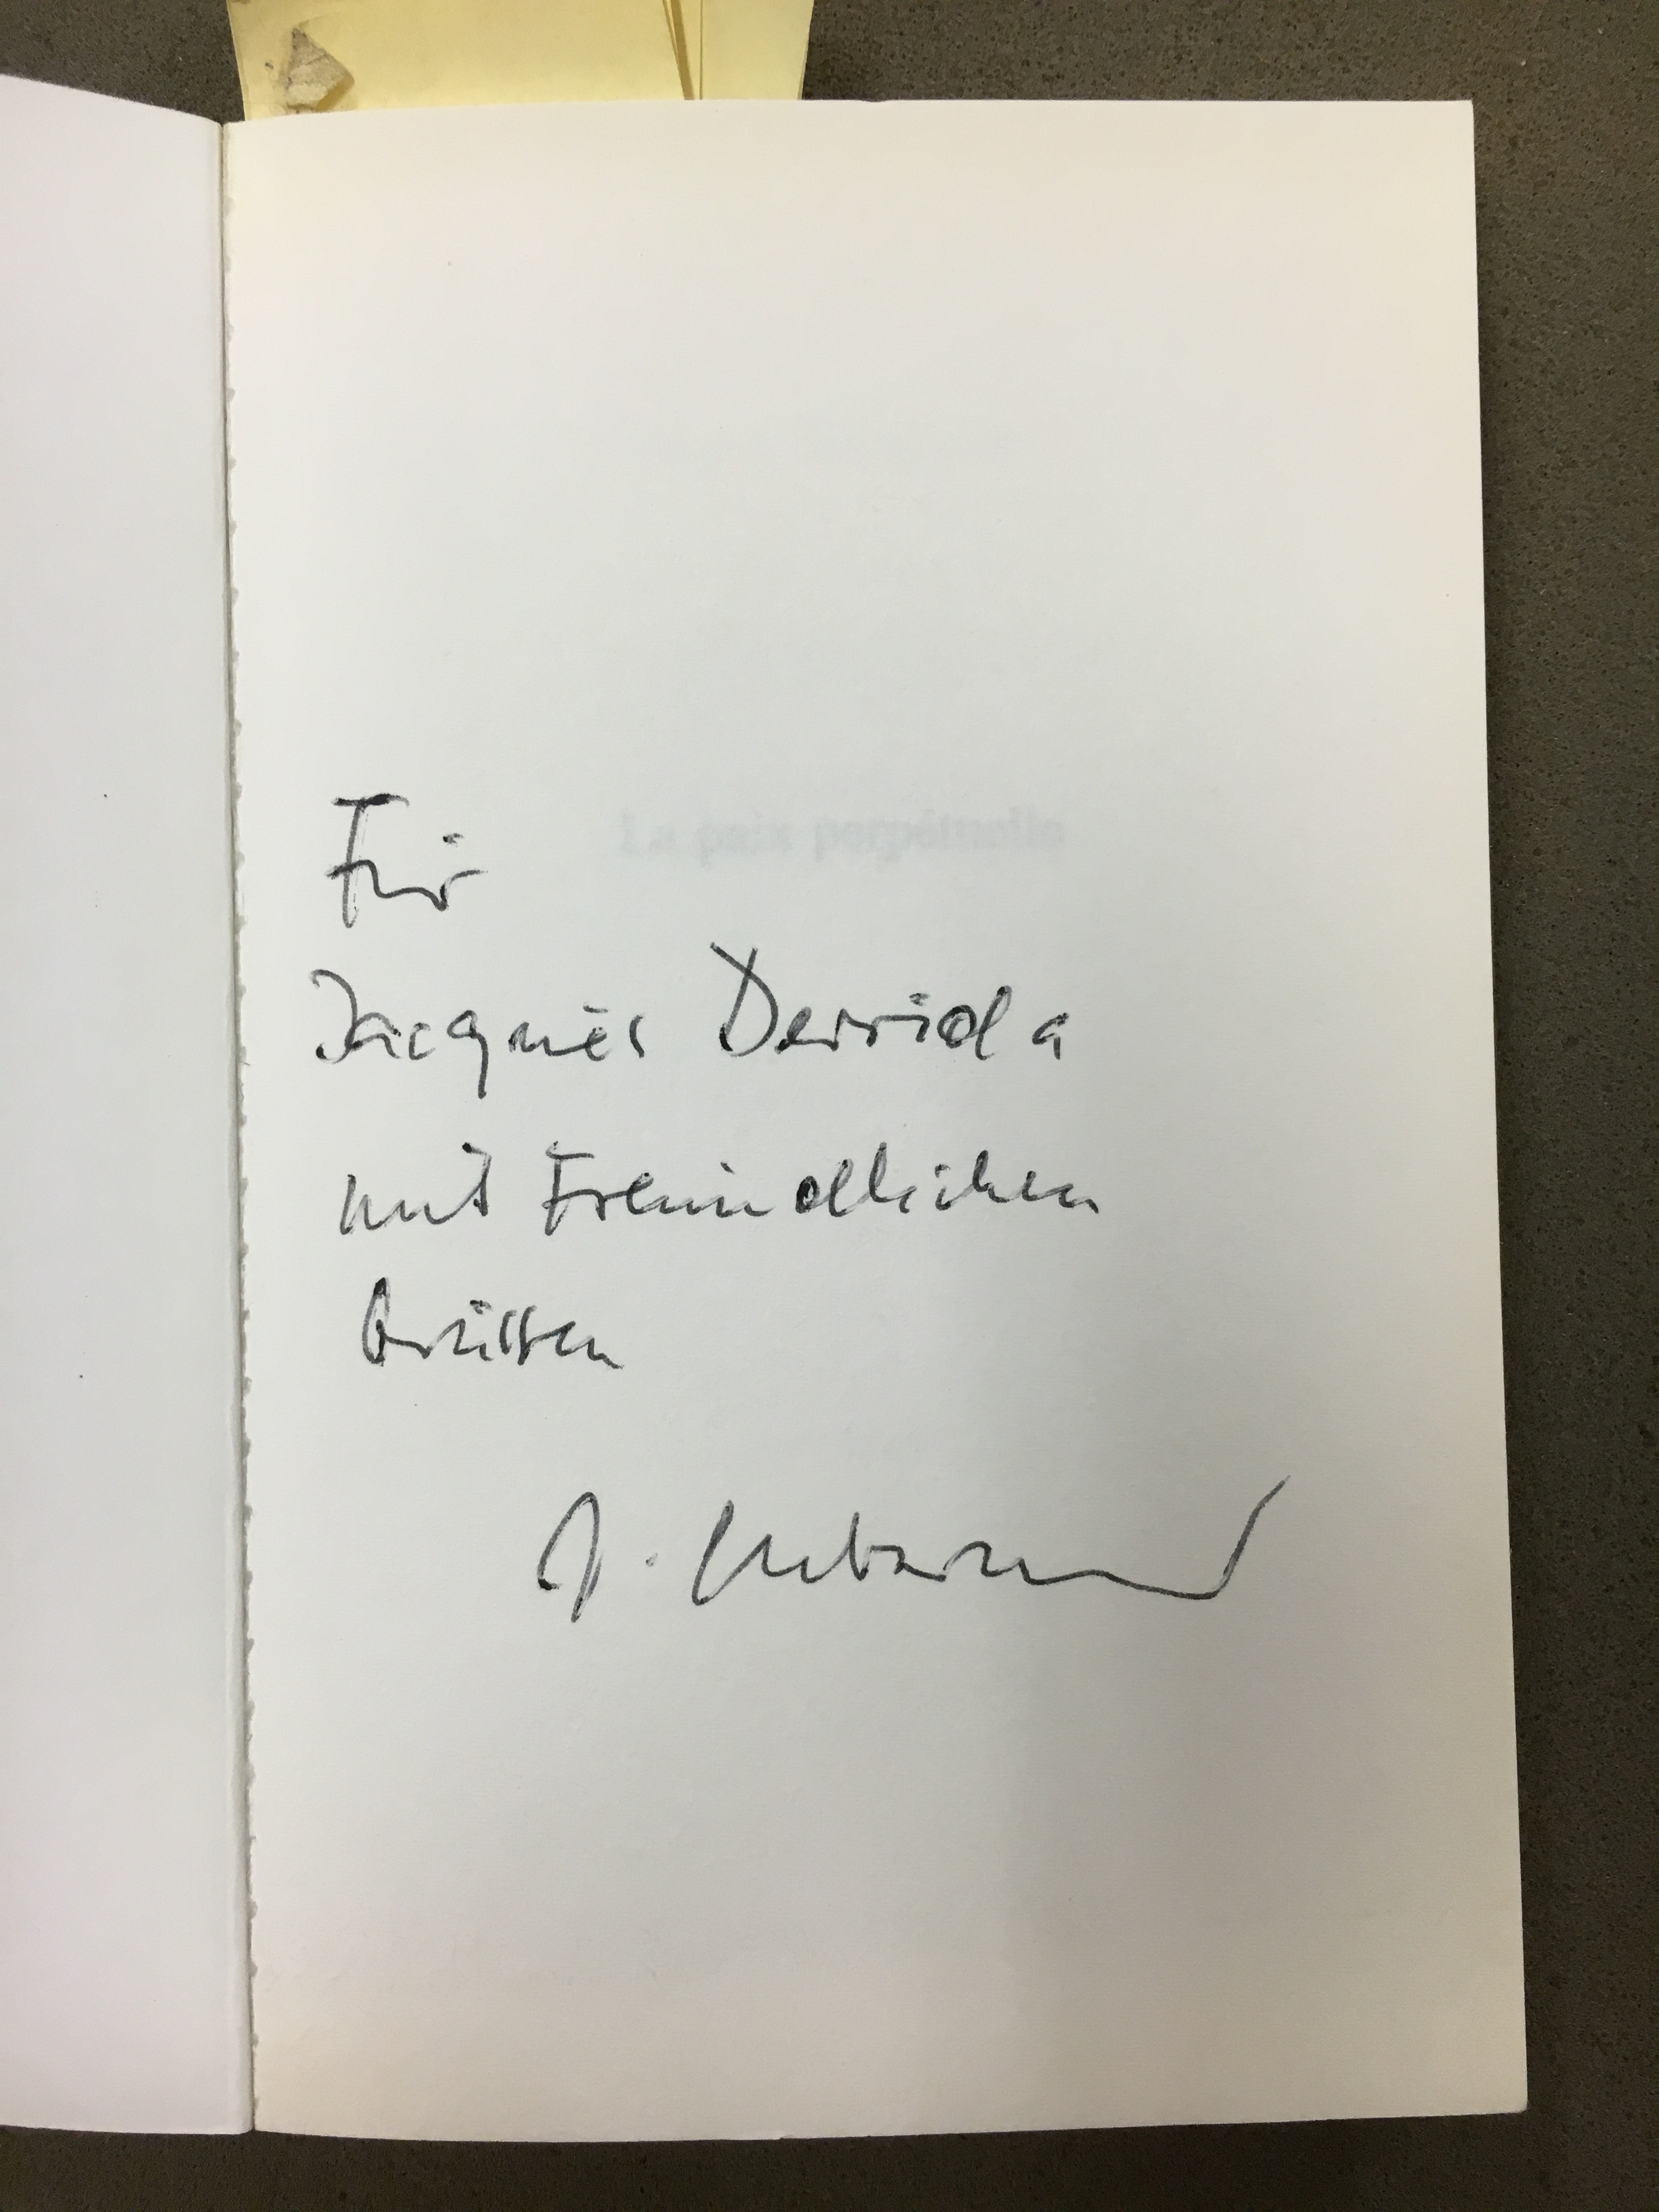 La paix perpétuelle
Für
Jacques Derrida
mit Freundlichen
Grüssen
J. Habermas